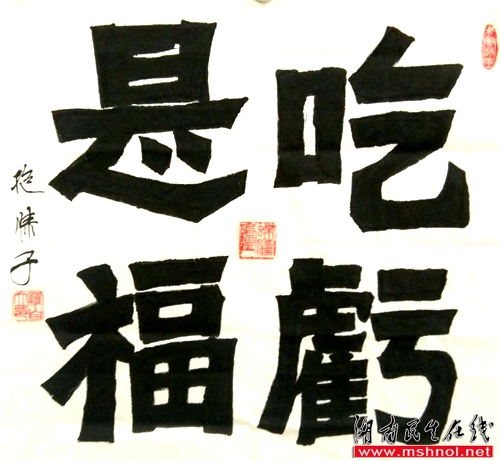 吃虧
是福
湖南民生在线
www.mshnol.net